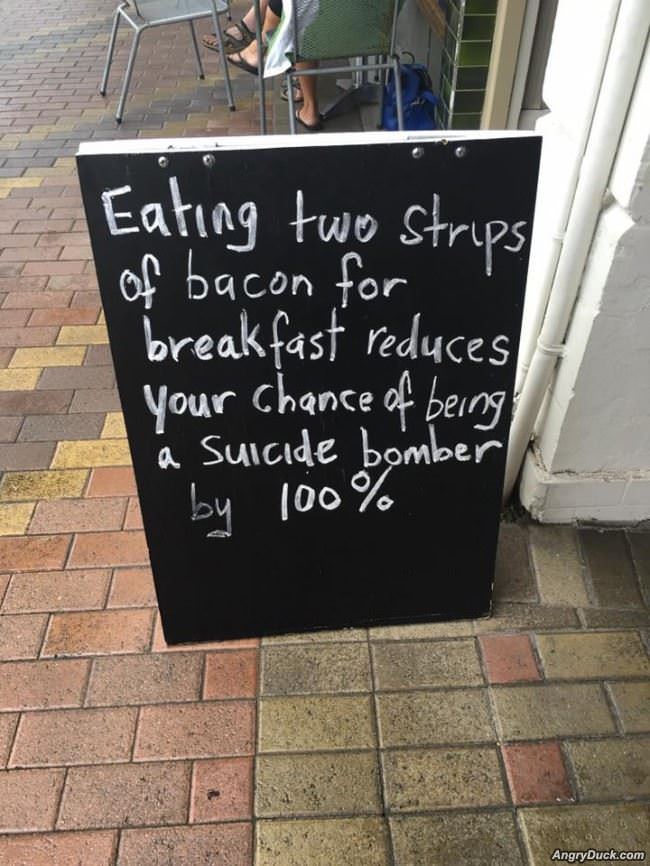 Eating two strips
of bacon for
breakfast reduces
your chance of being
a suicide bomber
by 100%
AngryDuck.com